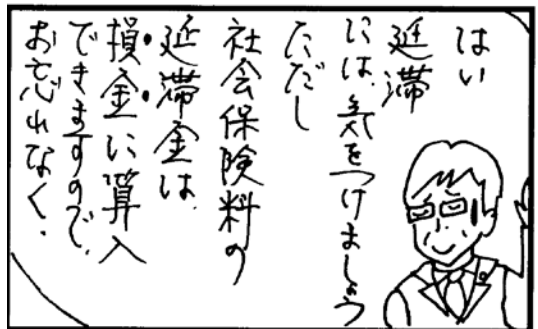 はい
延滞
には、気をつけましょう
ただし
社会保険料の
延滞金は
損金に算入
できますので、
お忘れなく.